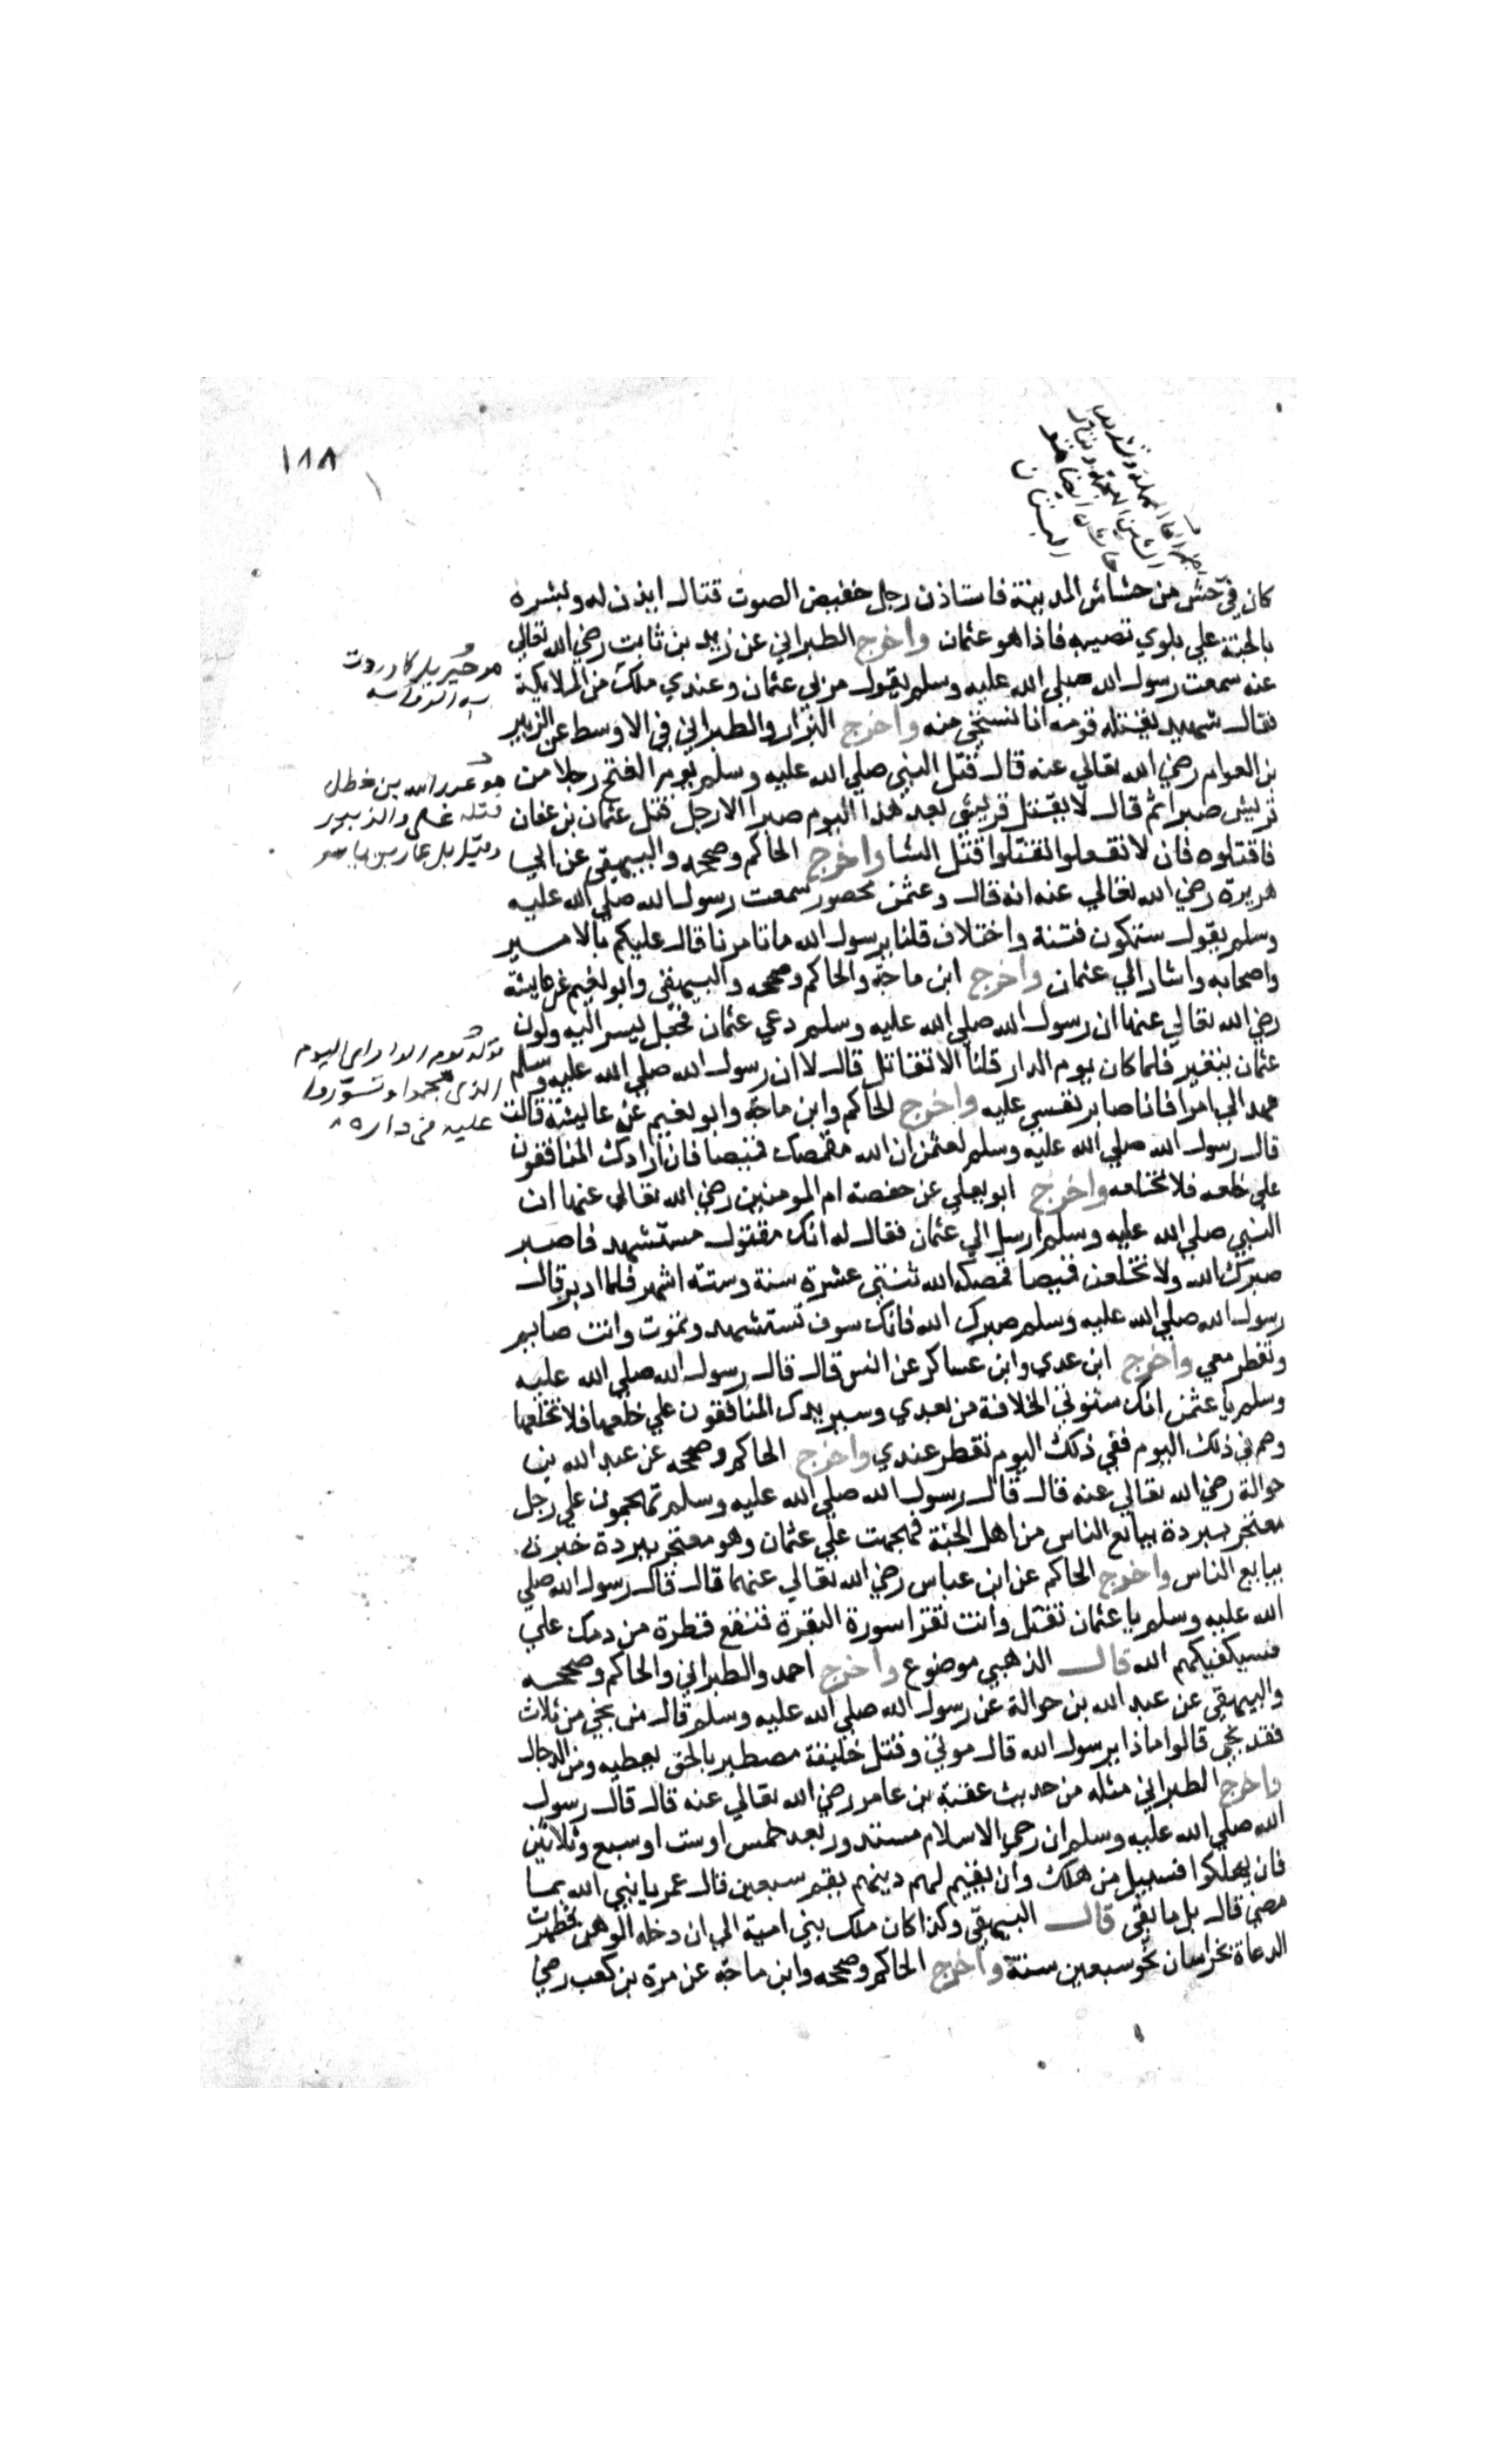 ١٨٨
كان في حش من حشاش المدينة فاستاذن رجل خفيض الصوت فقال ايذن له وبشره
بالجنة علي بلوي تصيبه فاذا هو عثمان واخرج الطبراني عن زيد بن ثابت رضي الله تعالي
عنه سمعت رسول الله صلي الله عليه وسلم يقول مر بي عثمان وعندي ملك من الملايكة
فقال شهيد يقتله قومه انا نستحي منه واخرج البزار والطبراني في الاوسط عن الزبير
بن العوام رضي الله تعالي عنه قال قتل النبي صلي الله عليه وسلم يوم الفتح رجلا من
قريش صبرا ثم قال لا يقتل قريشي بعد هذا اليوم صبرا الا رجل قتل عثمان بن عفان
فاقتلوه فان لا تفعلوا تقتلوا قتل الشا واخرج الحاكم وصححه والبيهقي عن ابي
هريرة رضي الله تعالي عنه انه قال وعثمن محصور سمعت رسول الله صلي الله عليه
وسلم يقول ستكون فتنة واختلاف قلنا يرسول الله ما تامرنا قال عليكم بالامير
واصحابه واشار الي عثمان واخرج ابن ماجة والحاكم وصححه والبيهقي وابو نعيم عن عايشة
رضي الله تعالي عنها ان رسول الله صلي الله عليه وسلم دعي عثمان فجعل يسر اليه ولون
عثمان يتغير فلما كان يوم الدار قلنا الا تقاتل قال لا ان رسول الله صلي الله عليه وسلم
عهد الي امرا فانا صابر نفسي عليه واخرج الحاكم وابن ماجة وابو نعيم عن عايشة قالت
قال رسول الله صلي الله عليه وسلم لعثمن ان الله مقمصك قميصا فان ارادك المنافقون
علي خلعه فلا تخلعه واخرج ابو يعلي عن حفصة ام المومنين رضي الله تعالي عنها ان
النبي صلي الله عليه وسلم ارسل الي عثمان فقال له انك مقتول مستشهد فاصبر
صبرك الله ولا تخلعن قميصا قمصكه الله ثنتي عشرة سنة وستة اشهر فلما ادبر قال
رسول الله صلي الله عليه وسلم صبرك الله فانك سوف تستشهد وتموت وانت صايم
وتفطر معي واخرج ابن عدي وابن عساكر عن انس قال قال رسول الله صلي الله عليه
وسلم يا عثمن انك ستوتي الخلافة من بعدي وسيريدك المنافقون علي خلعها فلا تخلعها
وصم في ذلك اليوم ففي ذلك اليوم تفطر عندي واخرج الحاكم وصححه عن عبد الله بن
حوالة رضي الله تعالي عنه قال قال رسول الله صلي الله عليه وسلم تهجمون علي رجل
معتجر ببردة يبايع الناس من اهل الجنة فهجمت علي عثمان وهو معتجر ببردة حبرة
يبايع الناس واخرج الحاكم عن ابن عباس رضي الله تعالي عنهما قال قال رسول الله صلي
الله عليه وسلم يا عثمان تقتل وانت تقرا سورة البقرة فتقع قطرة من دمك علي
فسيكفيكهم الله قال الذهبي موضوع واخرج احمد والطبراني والحاكم وصححه
والبيهقي عن عبد الله بن حوالة عن رسول الله صلي الله عليه وسلم قال من نجي من ثلاث
فقد نجي قالوا ماذا يرسول الله قال موتي وقتل خليفة مصطبر بالحق يعطيه ومن الدجال
واخرج الطبراني مثله من حديث عقبة بن عامر رضي الله تعالي عنه قال قال رسول
الله صلي الله عليه وسلم ان رحي الاسلام ستدور بعد خمس او ست او سبع وثلاثين
فان يهلكوا فسبيل من هلك وان يقيم لهم دينهم يقم سبعين قال عمر يا نبي الله بما
مضي قال بل ما بقي قال البيهقي وكذا كان ملك بني امية الي ان دخله الوهن فظهرت
الدعاة بخراسان نحو سبعين سنة واخرج الحاكم وصححه وابن ماجة عن مرة بن كعب رضي
هو عبد الله بن خطل
عليه في داره